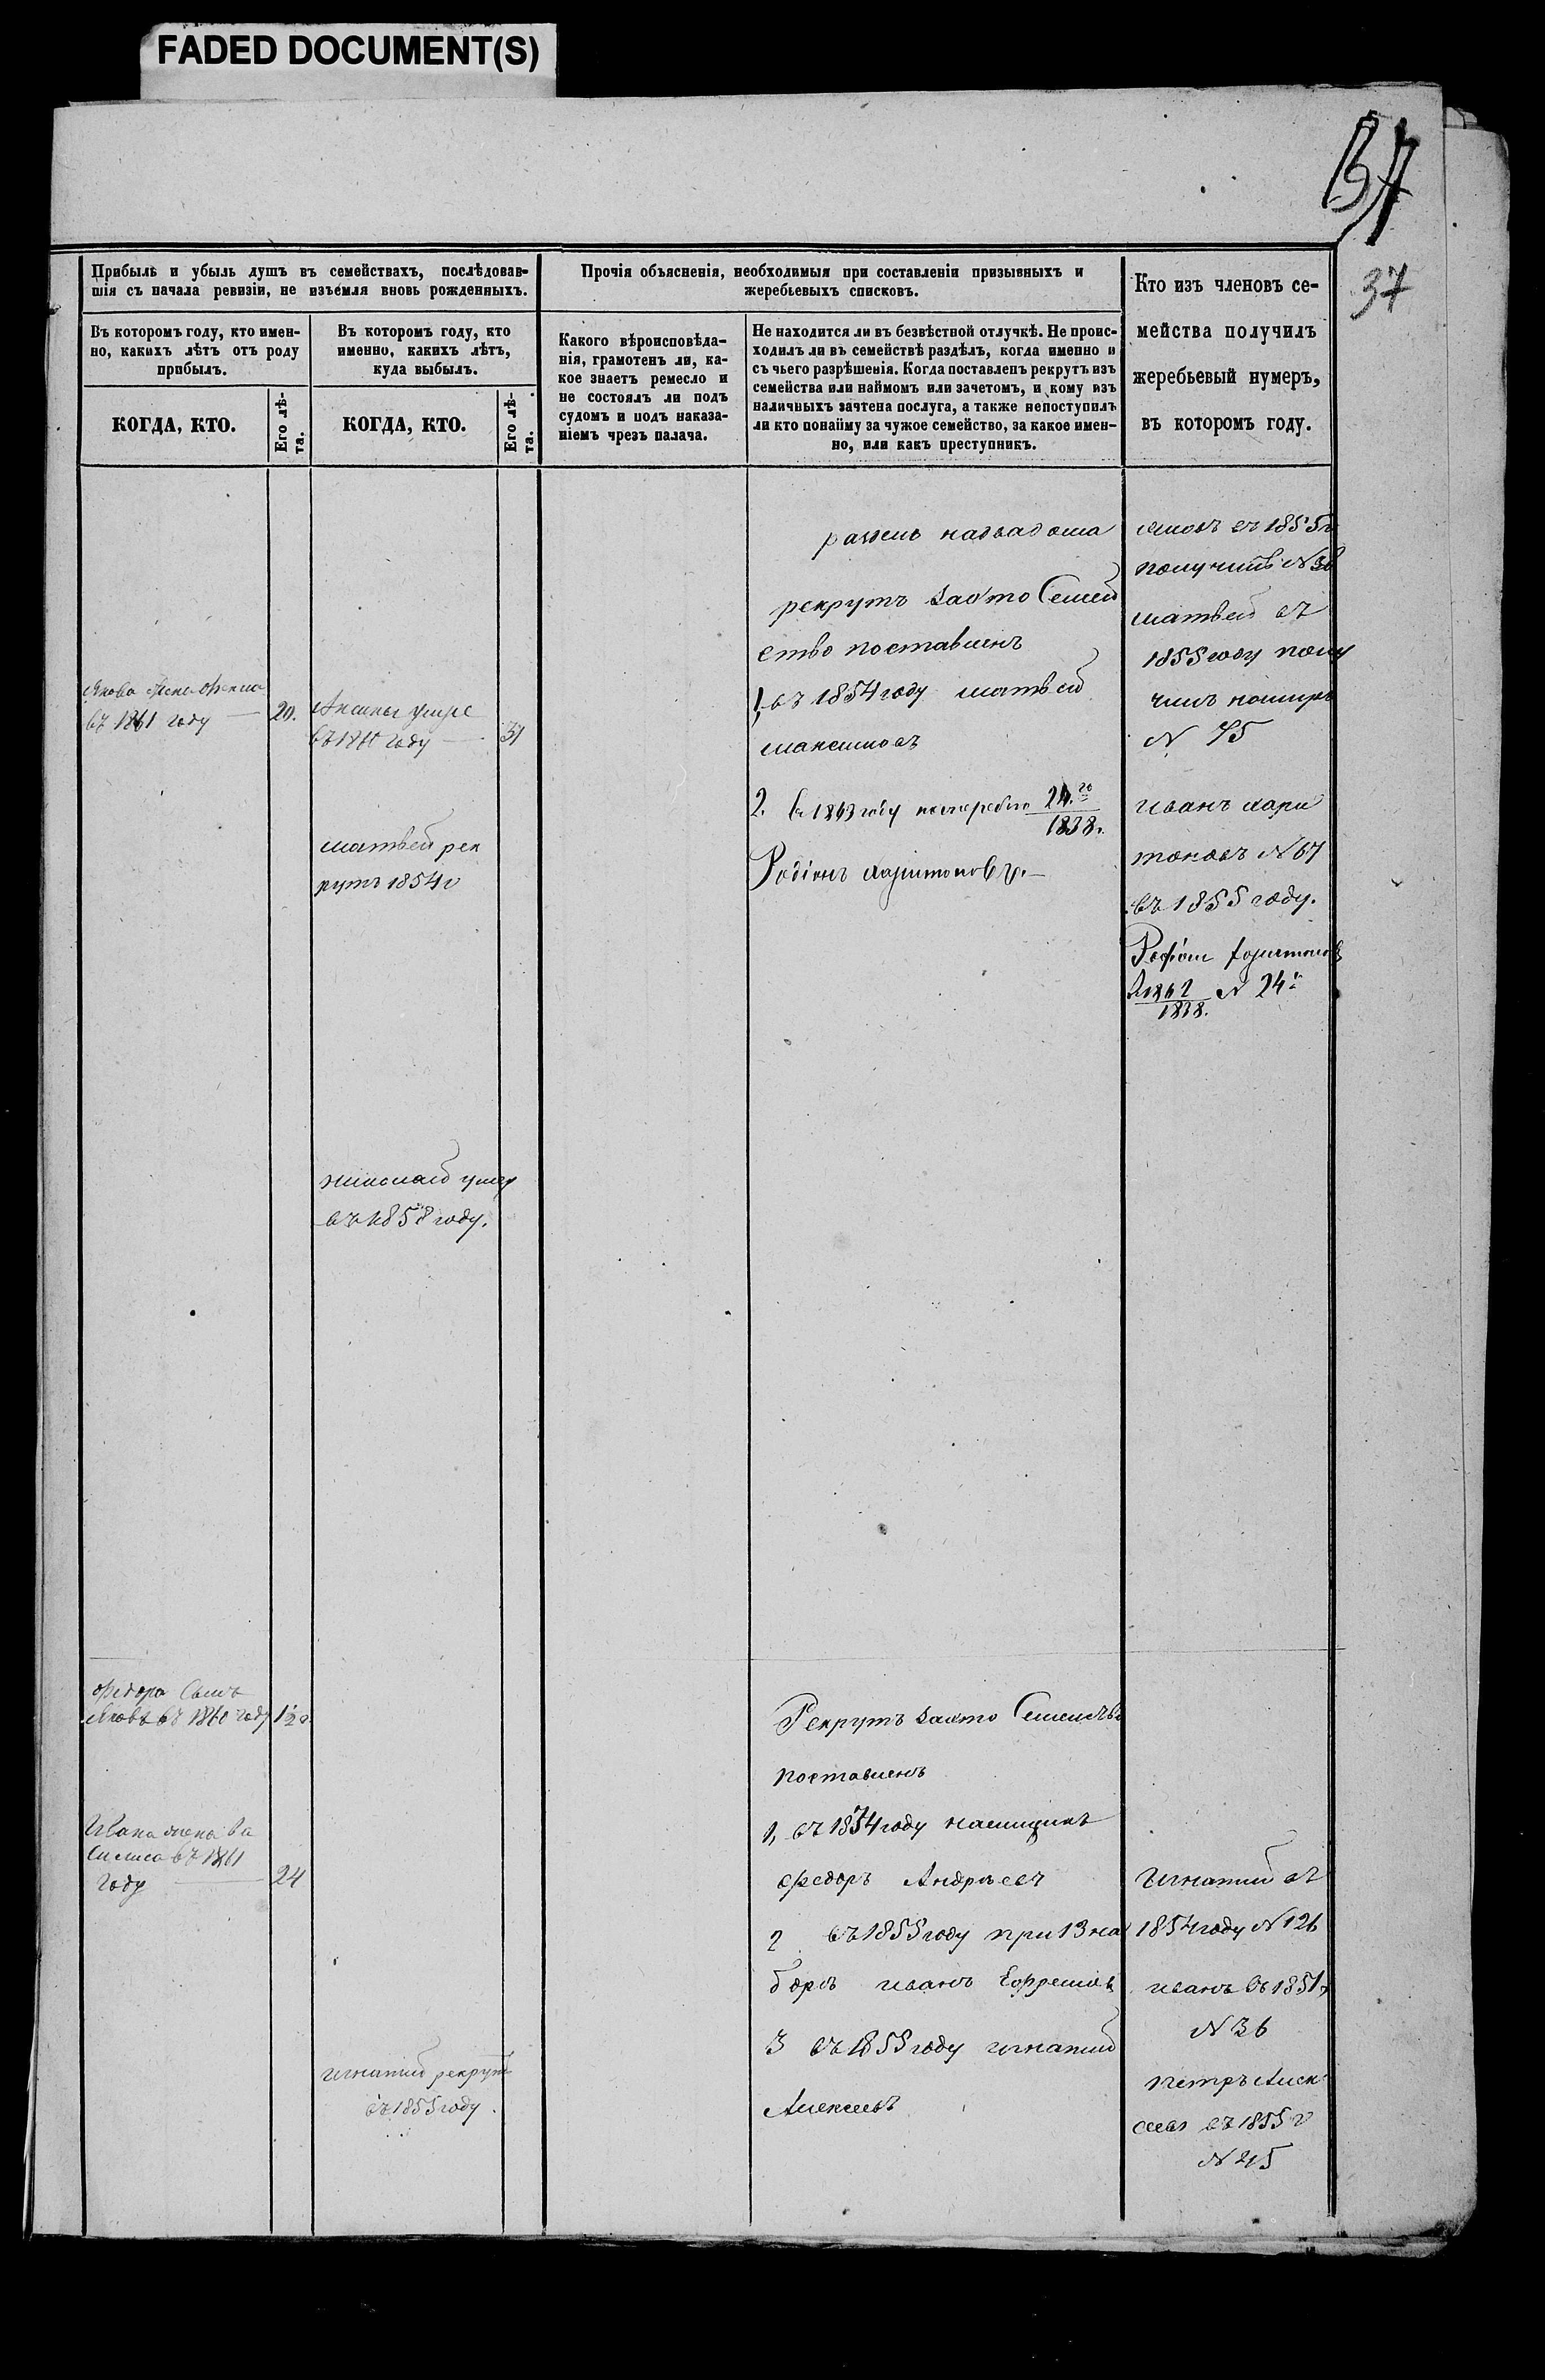 FADED DOCUMENT(S)
37
37
Прибыль и убыль душъ въ семействахъ, послѣдовав-
шія съ начала ревизіи, не изъемля вновь рожденныхъ.
Въ которомъ году, кто имен-
но, какихъ лѣтъ отъ роду
прибылъ.
КОГДА, КТО.
Его лѣ-
та.
Въ которомъ году, кто
именно, какихъ лѣтъ,
куда выбылъ.
КОГДА, КТО.
Его лѣ-
та.
Прочія объясненія, необходимыя при составленіи призывныхъ и
жеребьевыхъ списковъ.
Какого вѣроисповѣда-
нія, грамотенъ ли, ка-
кое знаетъ ремесло и
не состоялъ ли подъ
судомъ и подъ наказа-
ніемъ чрезъ палача.
Не находится ли въ безвѣстной отлучкѣ. Не проис-
ходилъ ли въ семействѣ раздѣлъ, когда именно и
съ чьего разрѣшенія. Когда поставленъ рекрутъ изъ
семейства или наймомъ или зачетомъ, и кому изъ
наличныхъ зачтена послуга, а также непоступилъ
ли кто понайму за чужое семейство, за какое имен-
но, или какъ преступникъ.
Кто изъ членовъ се-
мейства получилъ
жеребьевый нумеръ,
въ которомъ году.
Якова жена
въ 1861 году — 20.
умре
въ 1860 году — 31
матвей рек
рутъ 1854 г
николай умер
въ 1858 году.
рекрутъ заэто Семей
ство поставленъ
1, въ 1854 году матвей
максимовъ
2. въ 1863 году 24.го
1838.
Родіонъ харитоновъ.—
въ 1855 г
получилъ N 38
матвей въ
1855 году полу
чилъ номиръ
N 75
иванъ хари
тоновъ N 67
въ 1855 году.
Родіонъ харитоновъ
1862 N 24
1838.
федора Сынъ
Яковъ въ 1860 году 1½
Ивана жена Ва
силиса въ 1861
году — 24
игнатий рекрутъ
въ 1855 году.
Рекрутъ заэто Семейство
поставленъ
1, въ 1854 году наемщикъ
федоръ Андреевъ
2 въ 1855 году при 13 на
боръ иванъ Ефремовъ
3 въ 1855 году игнатий
Алексеевъ
игнатий въ
1854 году N 126
иванъ въ 1851 г
N 36
петръ Алек
сеевъ въ 1855 г
N 45